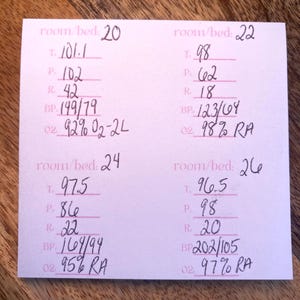 room/bed: 20
T. 101.1
P. 102
R. 42
BP. 149/79
O2. 92% O2-2L
room/bed: 22
T. 98
P. 62
R. 18
BP. 123/64
O2. 98% RA
room/bed: 24
T. 97.5
P. 86
R. 22
BP. 164/94
O2. 95% RA
room/bed: 26
T. 96.5
P. 98
R. 20
BP. 202/105
O2. 97% RA